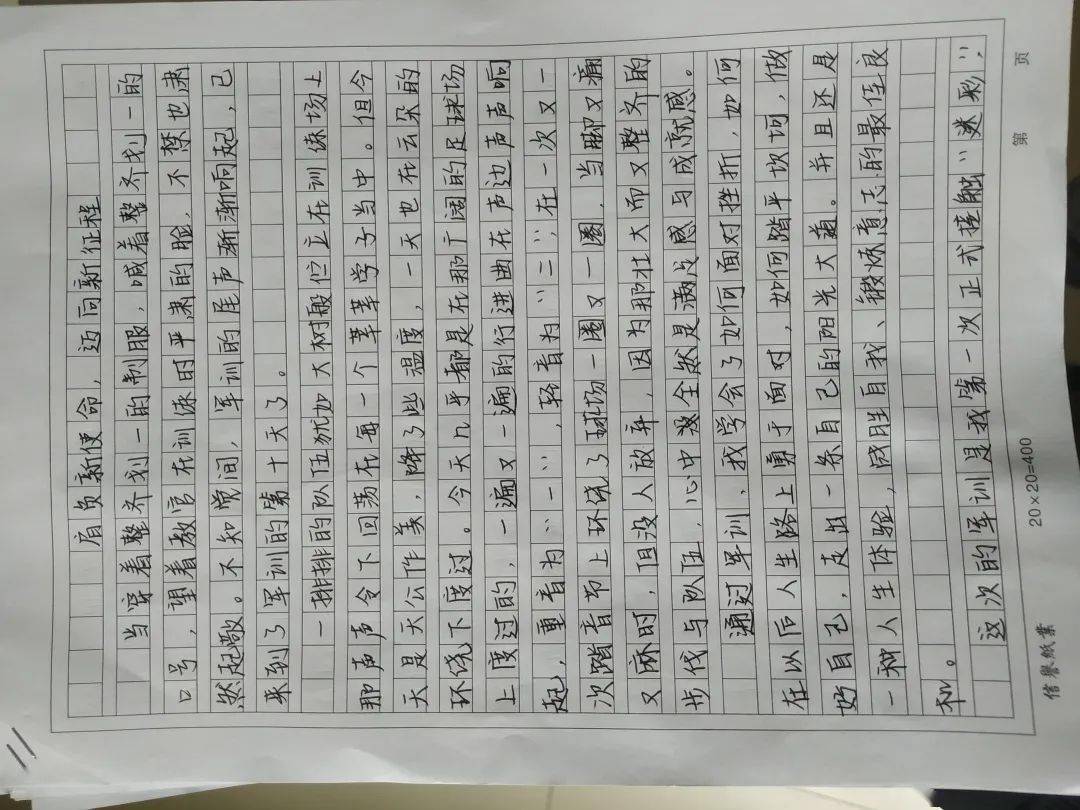 肩负新使命,迈向新征程
当穿着整齐划一的制服,喊着整齐划一的
口号,望着教官在训练时严肃的脸,不禁也肃
然起敬。不知觉间,军训的尾声渐渐响起,已
来到了军训的第十天了。
一排排的队伍犹如大树般伫立在训练场上
那声声令下回荡在每一个莘莘学子当中。但今
天是天公作美,降了些温度,一天也在云朵的
环绕下度过。今天几乎都是在那广阔的足球场
上度过的,一遍又一遍的行进曲在声边声声响
起,重音为“一”,轻音为“二”在一次又一
次踏音节上环绕了球场一圈又一圈,当脚又痛
又麻时,但没人放弃,因为那壮大而又整齐的
步伐与队伍,心中竟全然是满足感与成就感。
通过军训,我学会了如何面对挫折,如何
在以后人生路上勇于面对,如何踏平坎坷,做
好自己,走出一条自己的阳光大道。并且还是
一种人生体验,战胜自我、锻炼意志的最佳良
机。
这次的军训是我第一次正式接触“迷彩”
信誉纸业
20×20=400
第 页